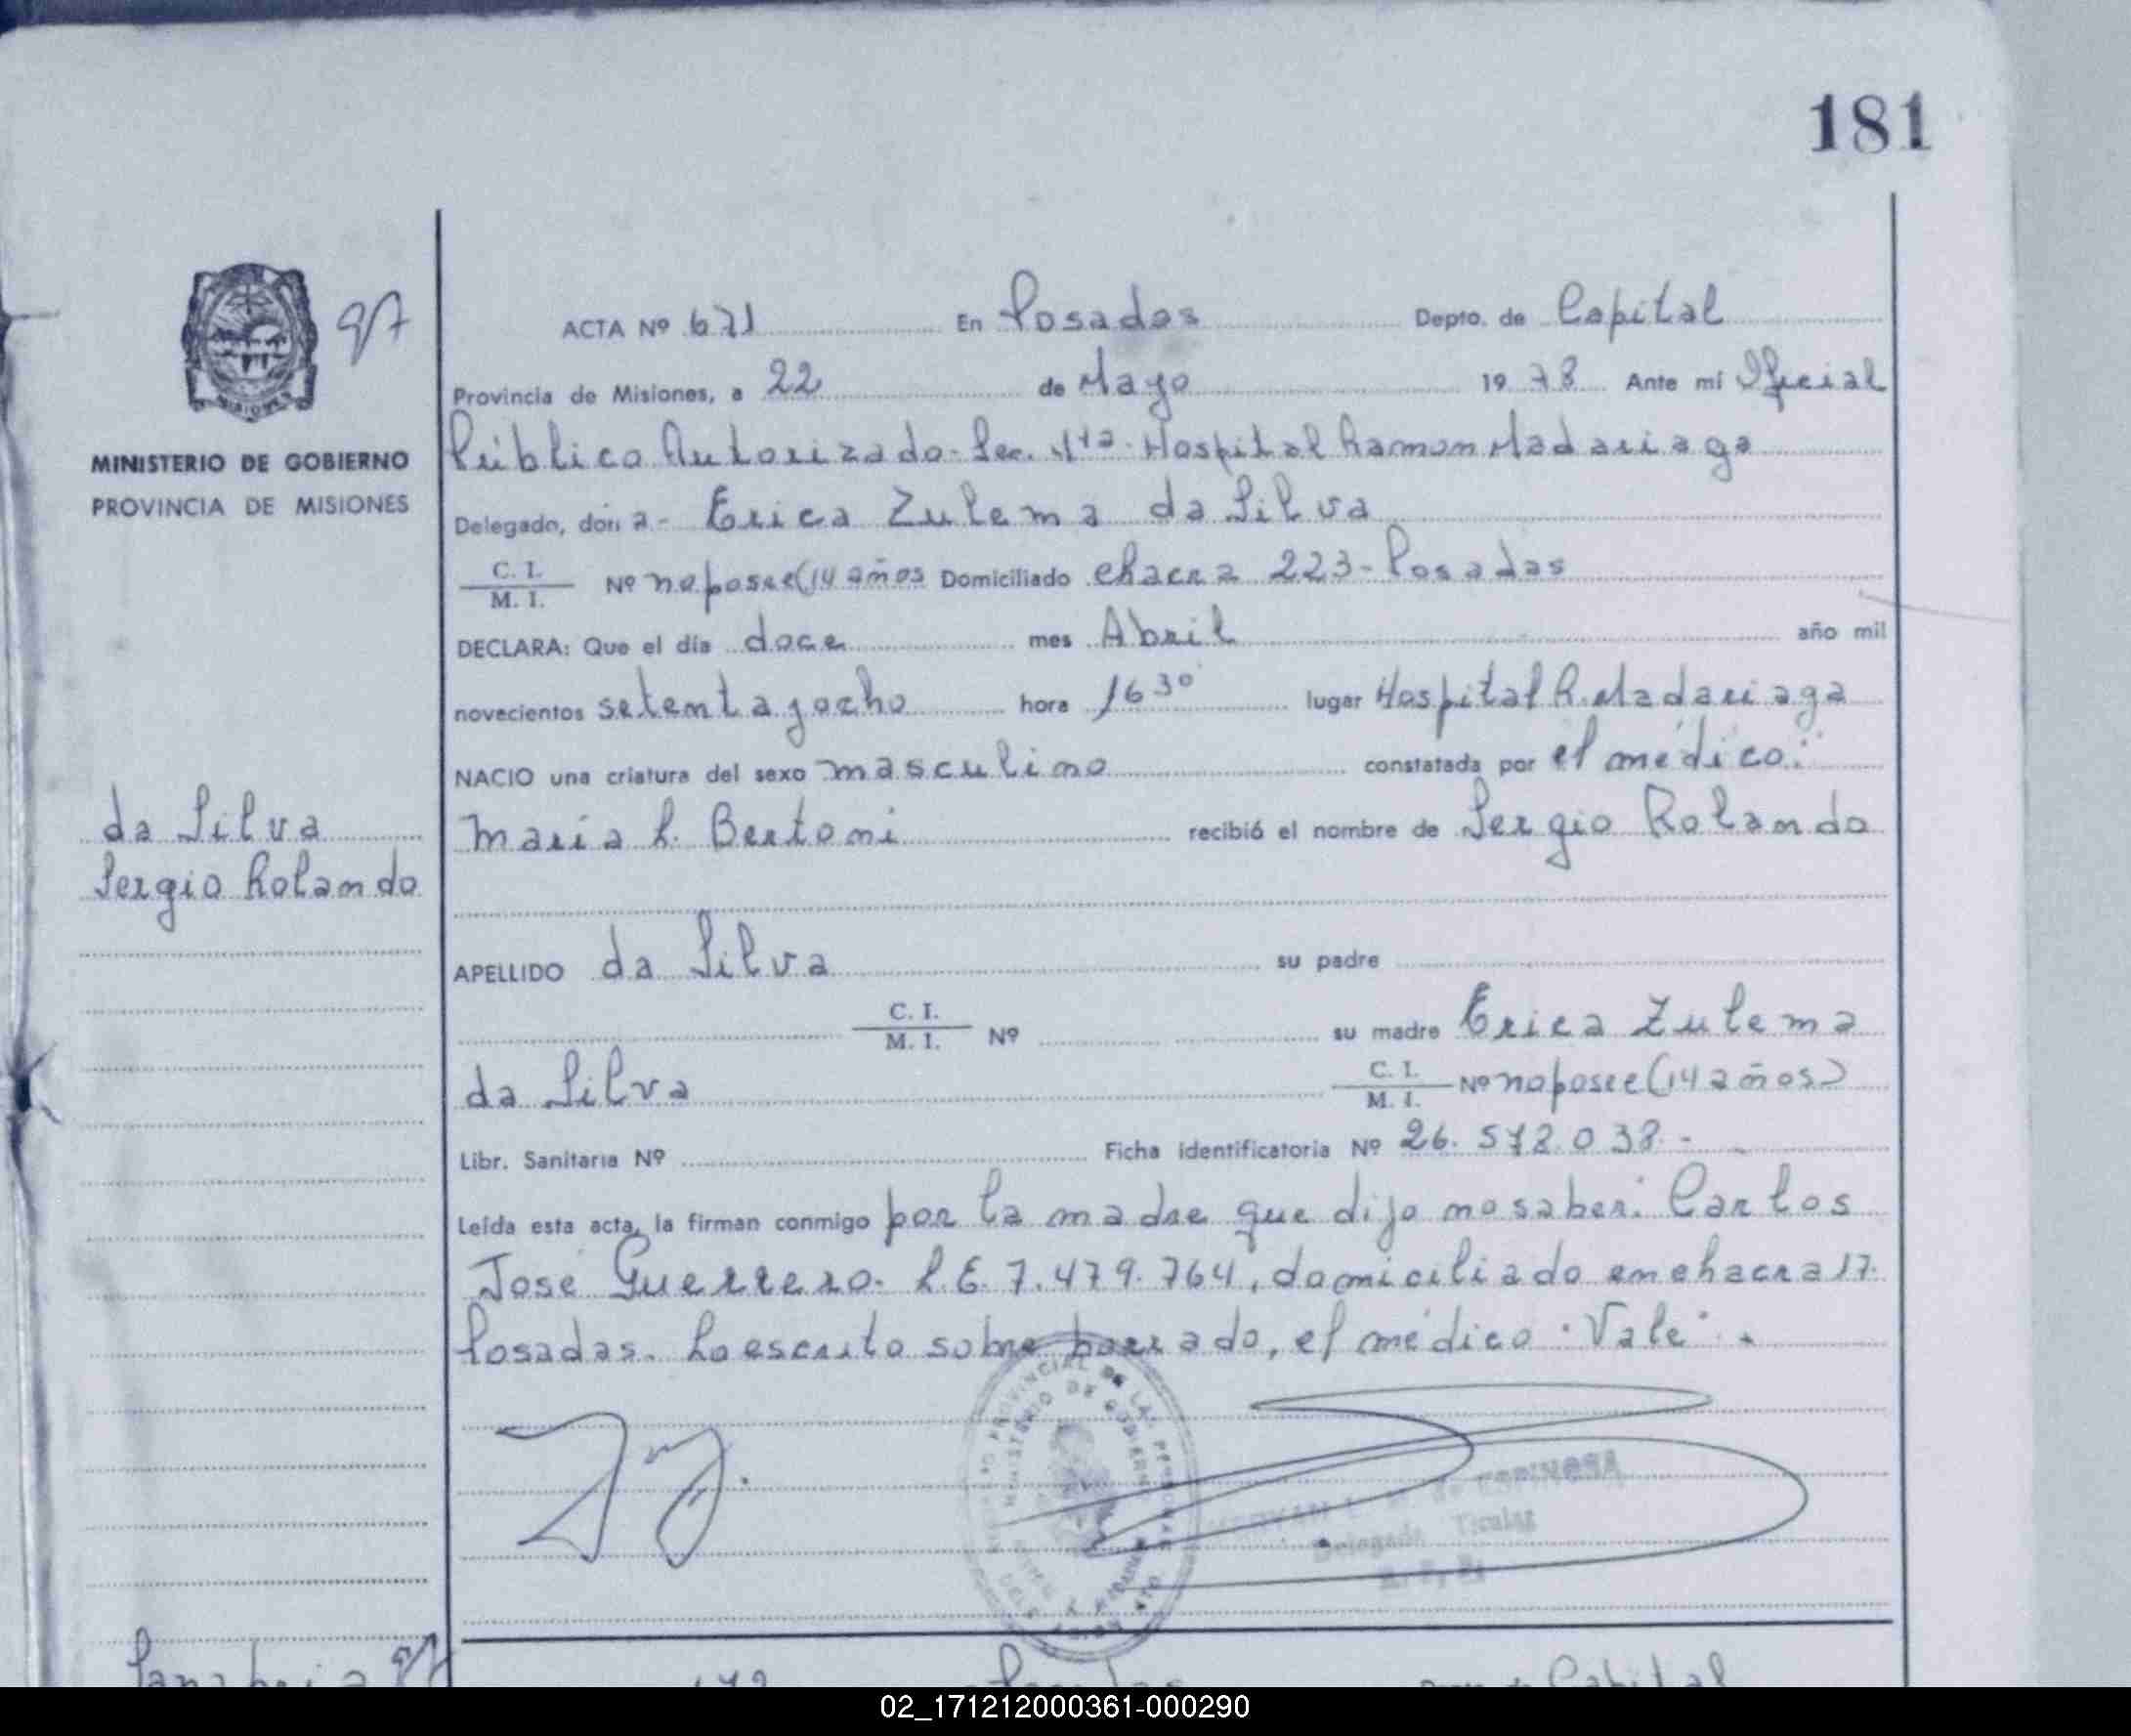 181
97
ACTA Nº 671 En Posadas Depto. de Capital
Provincia de Misiones, a 22 de Mayo 1978 Ante mí Oficial
MINISTERIO DE GOBIERNO
PROVINCIA DE MISIONES
Público Autorizado - Sec. 11ª. Hospital Ramon Madariaga
Delegado, don a - Erica Zulema da Silva
C. I. / M. I. Nº no posee (14 años Domiciliado chacra 223 - Posadas
DECLARA: Que el día doce mes Abril año mil
novecientos setenta y ocho hora 16 30' lugar Hospital R. Madariaga
NACIO una criatura del sexo masculino constatada por el médico:
da Silva
Sergio Rolando
Maria L. Bertoni recibió el nombre de Sergio Rolando
APELLIDO da Silva su padre
C. I. / M. I. Nº su madre Erica Zulema
da Silva C. I. / M. I. Nº no posee (14 años)
Libr. Sanitaria Nº Ficha identificatoria Nº 26.578.038.-
Leída esta acta, la firman conmigo por la madre que dijo no saber: Carlos
José Guerrero. L.E. 7.479.764, domiciliado en chacra 17.
Posadas. Lo escrito sobre borrado, el médico "Vale".
de ESPINOSA
Delegada Titular
Capital
02_171212000361-000290